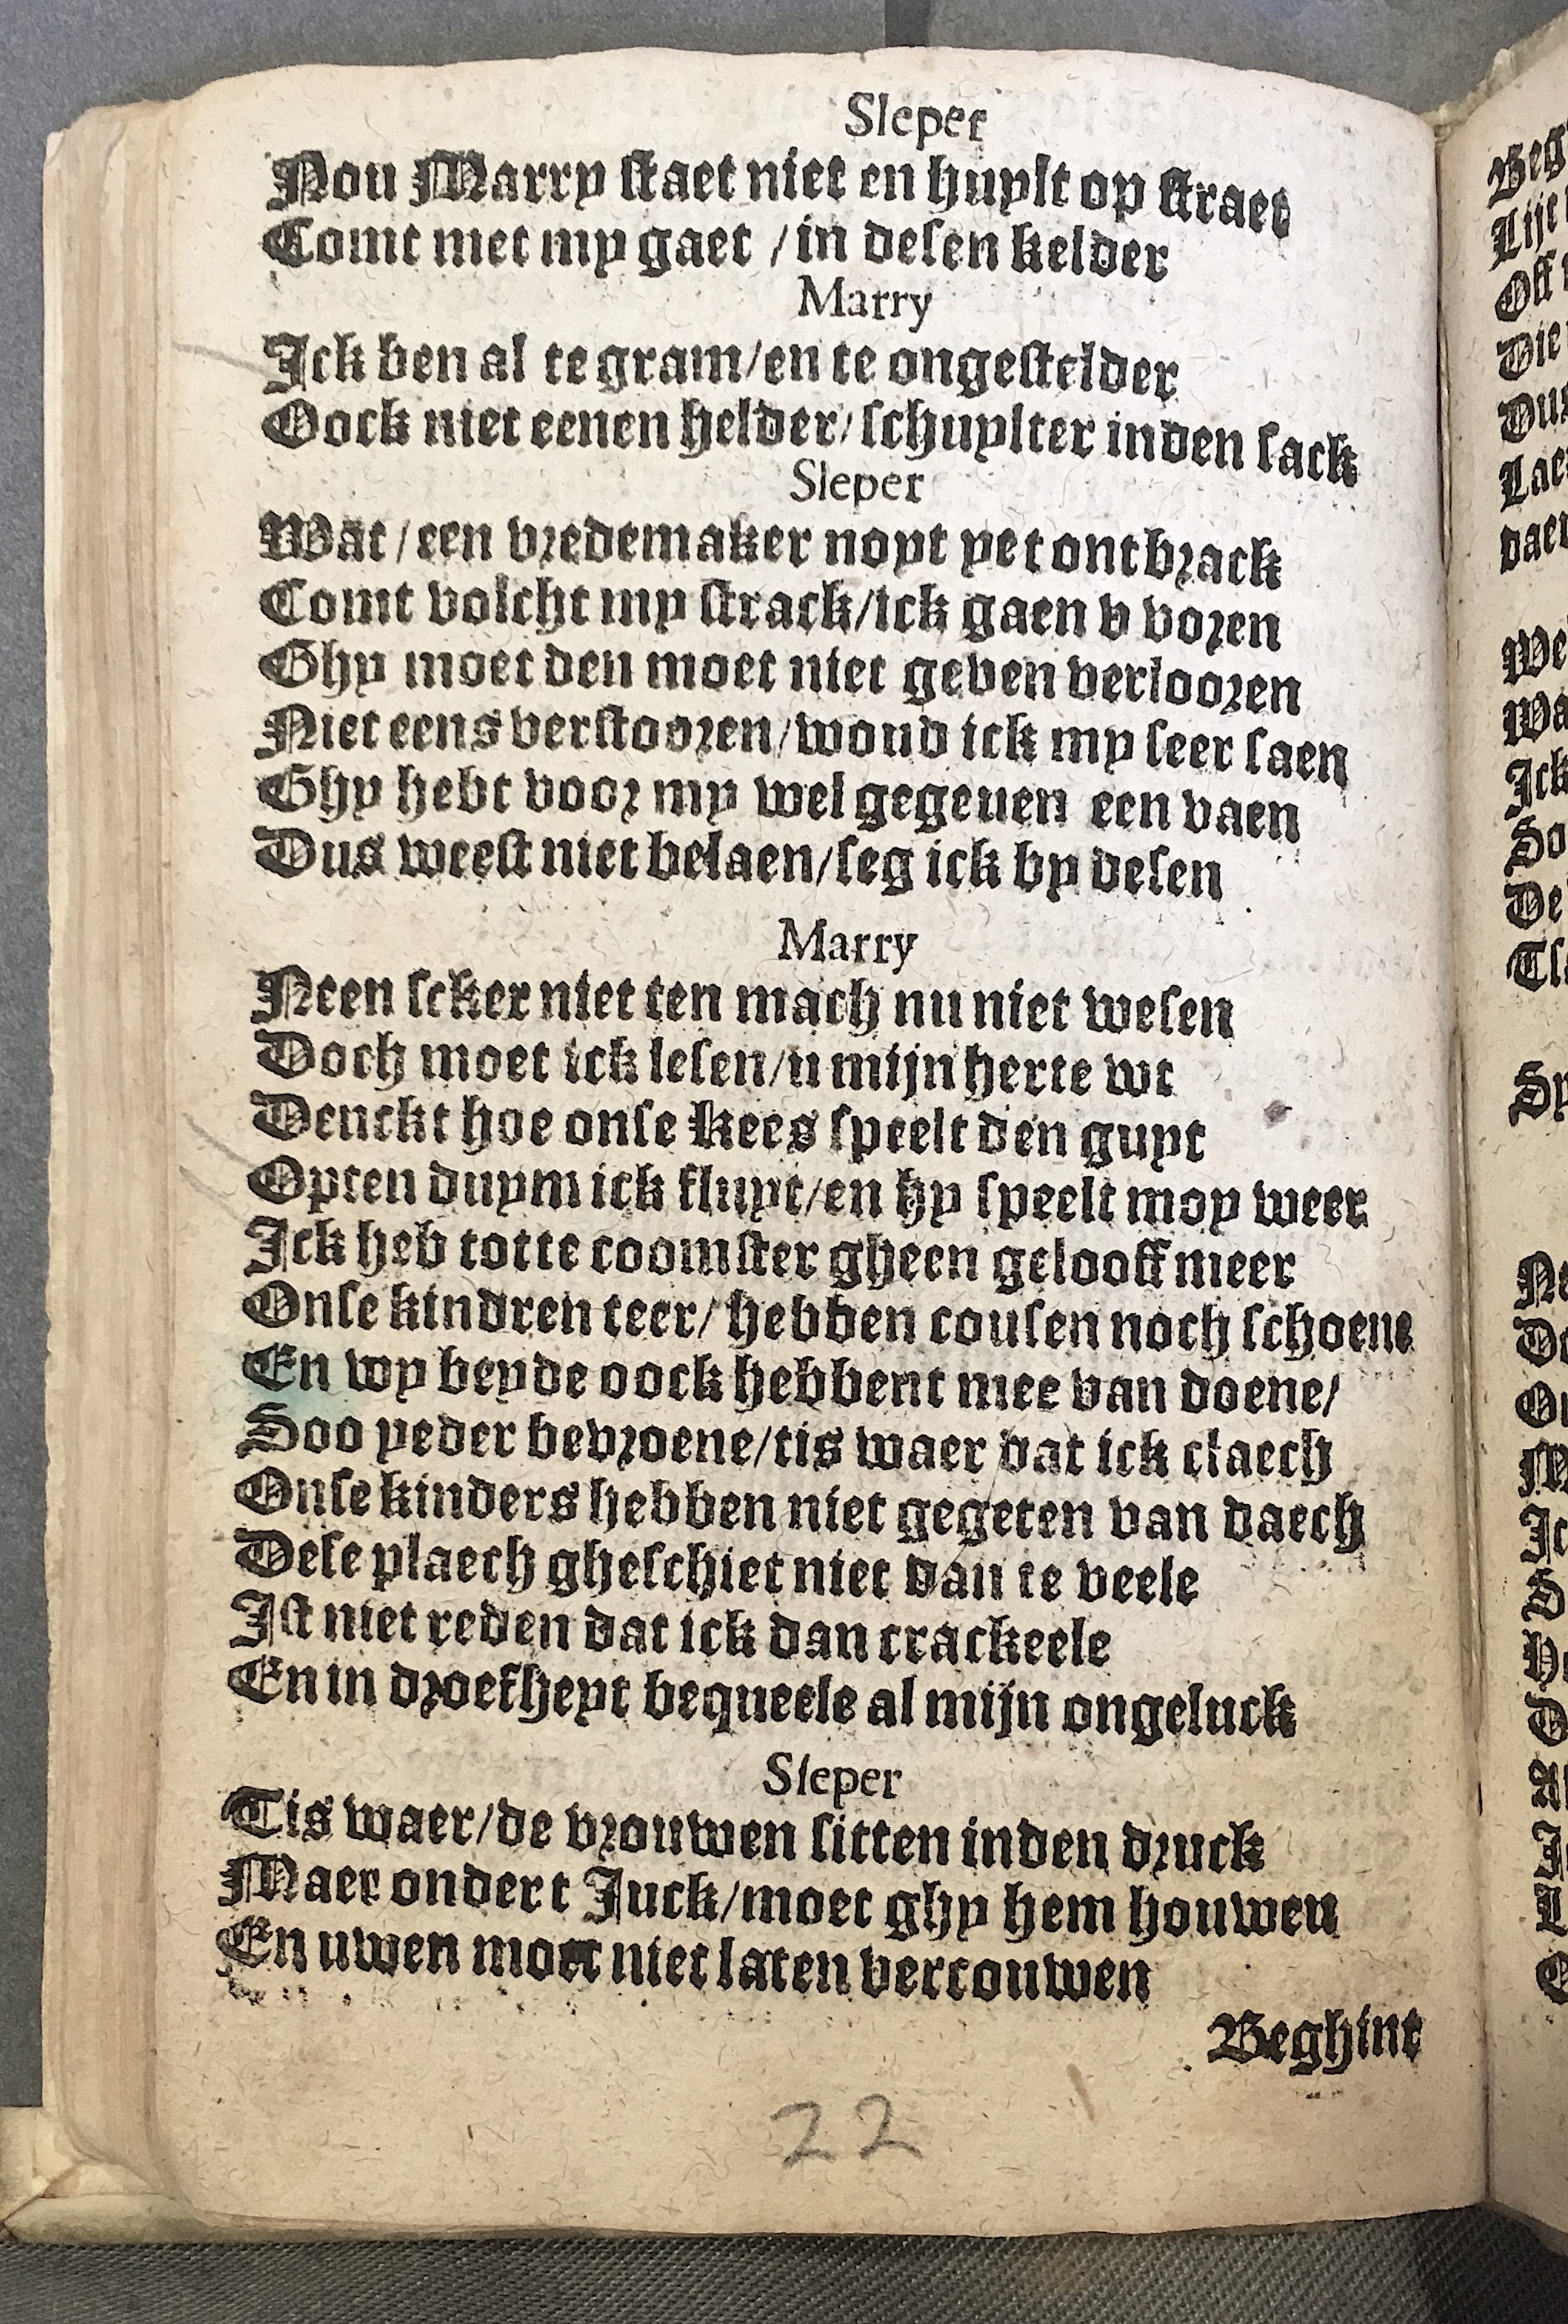 Sleper
Nou Marry staet niet en huylt op straet
Comt met my gaet / in desen kelder
Marry
Ick ben al te gram/en te ongestelder
Oock niet eenen helder/schuylter inden sack
Sleper
Wat/een vredemaker noyt yet ontbrack
Comt volcht my strack/ick gaen v voren
Ghy moet den moet niet geven verlooren
Niet eens verstooren/woud ick my seer saen
Ghy hebt voor my wel gegeuen een vaen
Dus weest niet belaen/seg ick by desen
Marry
Neen seker niet ten mach nu niet wesen
Doch moet ick lesen/u mijn herte wt
Denckt hoe onse Kees speelt den guyt
Opten duym ick fluyt/en hy speelt moy weer
Ick heb totte coomster gheen gelooff meer
Onse kindren teer/hebben cousen noch schoene
En wy beyde oock hebbent mee van doene/
Soo yeder bevroene/tis waer dat ick claech
Onse kinders hebben niet gegeten van daech
Dese plaech gheschiet niet dan te veele
Ist niet reden dat ick dan crackeele
En in droefheyt bequeele al mijn ongeluck
Sleper
Tis waer/de vrouwen sitten inden druck
Maer ondert Juck/moet ghy hem houwen
En uwen moet niet laten vercouwen
Beghint
22
Beg
Lijt
Off
Die
Laet
daer
We
Wa
Ick
So
De